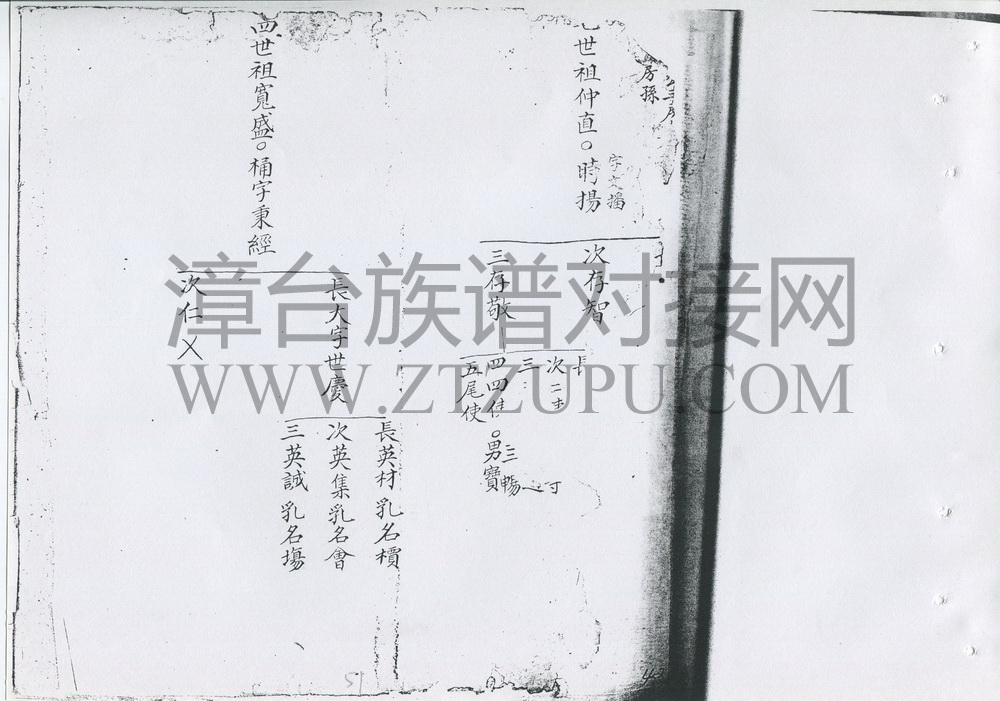 房孫
世祖仲直。時揚
字文播
次存智
三存敬
長
次二
三
四四使。男寶
三暢
五尾使
四世祖寬盛。桶字秉經
長大字世慶
次仁乂
長英材乳名檟
次英集乳名會
三英誠乳名塲
漳台族谱对接网
WWW.ZTZUPU.COM
51